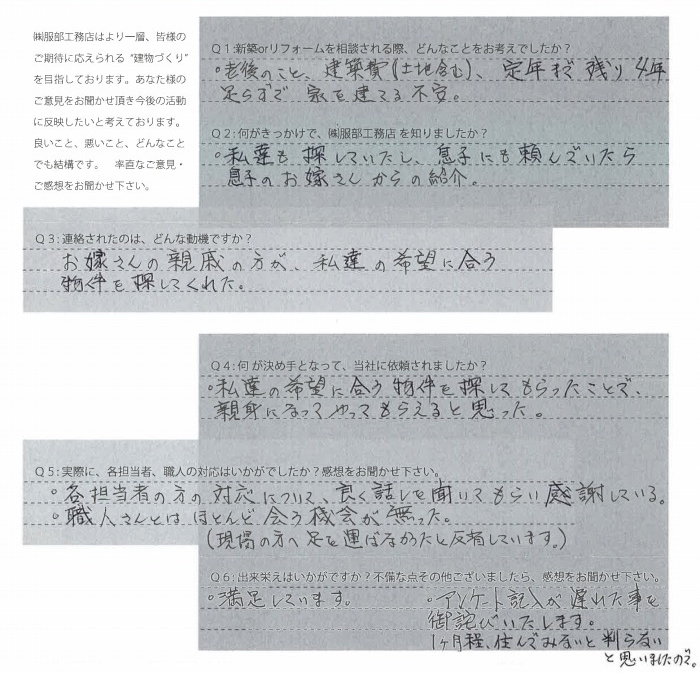 ㈱服部工務店はより一層、皆様の
ご期待に応えられる “建物づくり”
を目指しております。あなた様の
ご意見をお聞かせ頂き今後の活動
に反映したいと考えております。
良いこと、悪いこと、どんなこと
でも結構です。 率直なご意見・
ご感想をお聞かせ下さい。
Q1:新築orリフォームを相談される際、どんなことをお考えでしたか？
・老後のこと、建築費(土地含む)、定年まで残り4年
足らずで家を建てる不安。
Q2:何がきっかけで、㈱服部工務店 を知りましたか？
・私達も探していたし、息子にも頼んでいたら
息子のお嫁さんからの紹介。
Q3:連絡されたのは、どんな動機ですか？
お嫁さんの親戚の方が、私達の希望に合う
物件を探してくれた。
Q4:何 が決め手となって、当社に依頼されましたか？
・私達の希望に合う物件を探してもらったことで、
親身になってやってもらえると思った。
Q5:実際に、各担当者、職人の対応はいかがでしたか？感想をお聞かせ下さい。
・各担当者の方の対応について、良く話しを聞いてもらい感謝している。
・職人さんとはほとんど会う機会が無った。
(現場の方へ足を運ばなかったと反省しています。)
Q6:出来栄えはいかがですか？不備な点その他ございましたら、感想をお聞かせ下さい。
・満足しています。
・アンケート記入が遅れた事を
御詫びいたします。
1ヶ月程、住んでみないと判らない
と思いましたので。